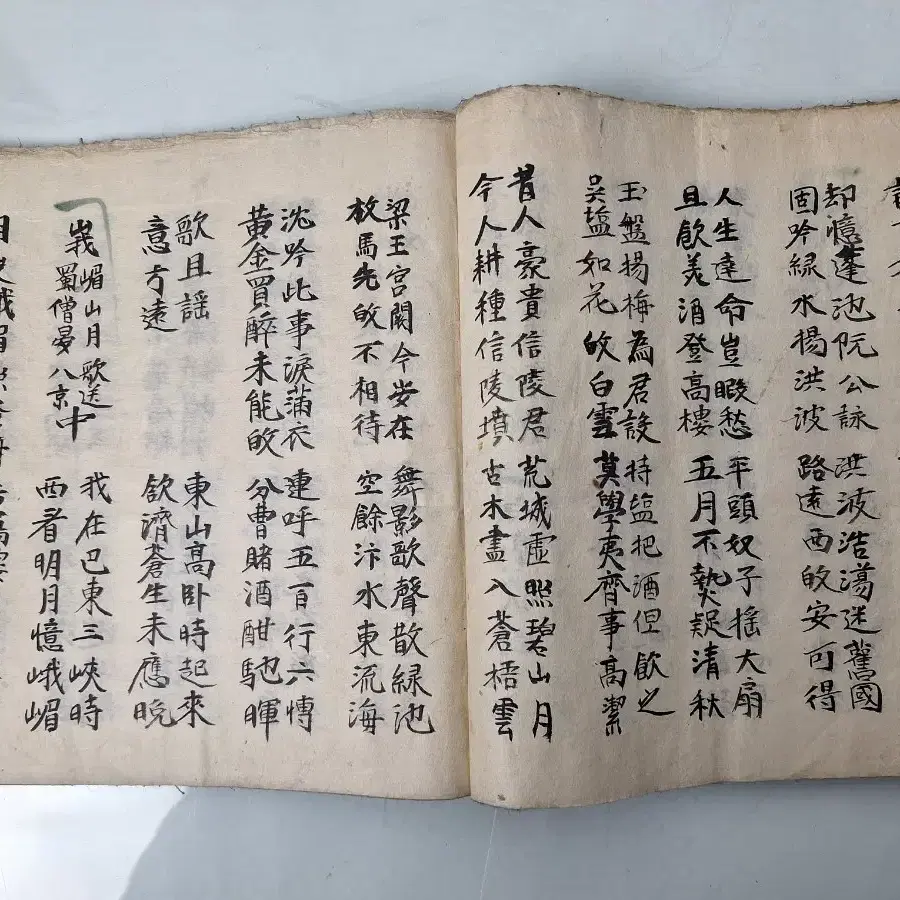 却憶蓬池阮公詠
固吟緑水揚洪波
洪波浩蕩迷舊國
路遠西皈安可得
人生達命豈暇愁
且飲美酒登高樓
平頭奴子搖大扇
五月不熱疑清秋
玉盤揚梅為君設
吳塩如花皎白雲
持塩把酒但飲之
莫學夷齊事高潔
昔人豪貴信陵君
今人耕種信陵墳
荒城虛照碧山月
古木盡入蒼梧雲
梁王宮闕今安在
枚馬先皈不相待
舞影歌聲散緑池
空餘汴水東流海
沈吟此事淚蒲衣
黄金買醉未能皈
連呼五百行六博
分曹賭酒酣馳暉
歌且謠
意方遠
東山高卧時起來
欲濟蒼生未應晚
峩嵋山月歌送
蜀僧晏八京中
我在巴東三峽時
西看明月憶峨嵋